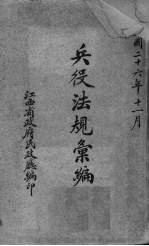 國二十六年十一月
兵役法規彙編
江西省政府民政廳編印